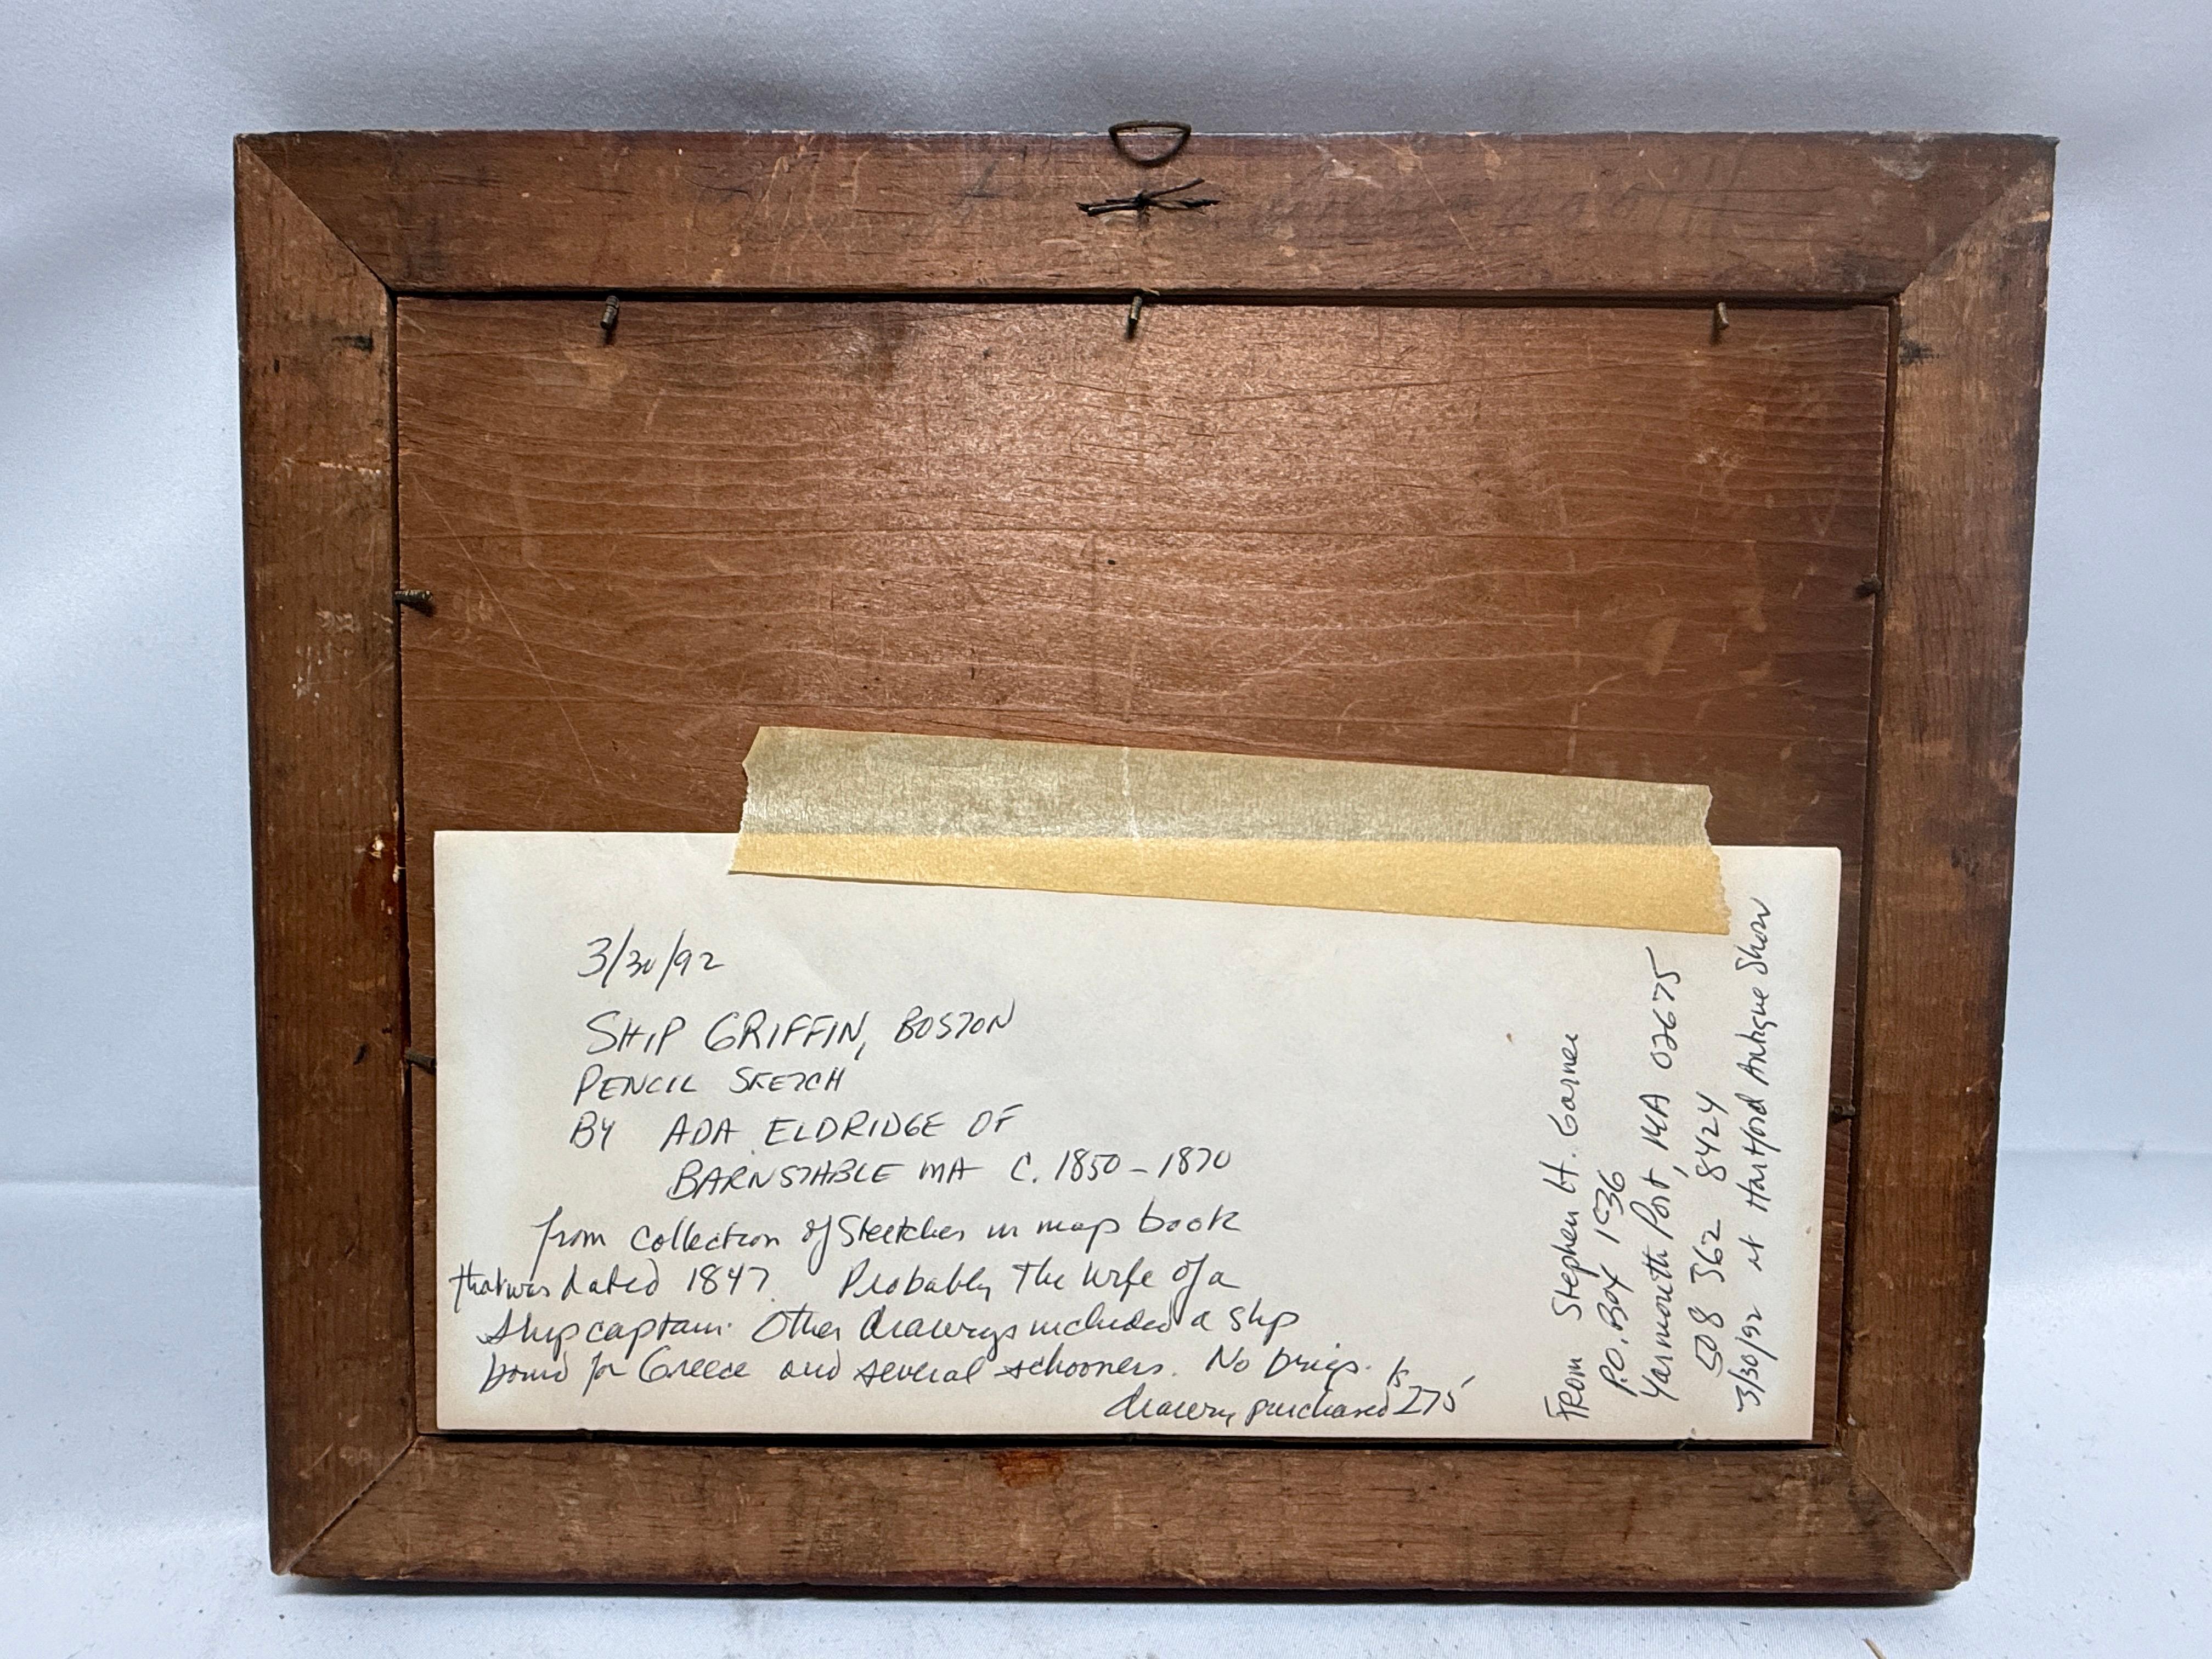 3/30/92
SHIP GRIFFIN, BOSTON
PENCIL SKETCH
BY ADA ELDRIDGE OF
BARNSTABLE MA C. 1850-1870
from collection of Sketches in map book
that was dated 1847. Probably the wife of a
ship captain. Other drawings included a ship
bound for Greece and several schooners. No brigs.
drawing purchased 275
FROM Stephen H. Garner
P.O. Box 1536
Yarmouth Port, MA 02675
508 362 8424
3/30/92 at Hartford Antique Show